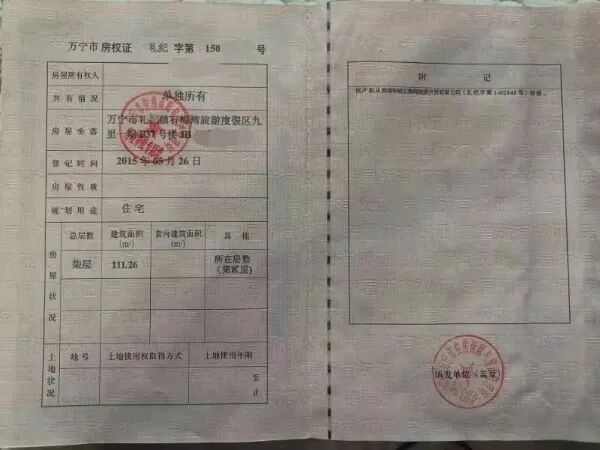 万宁市 房权证 礼纪 字第 150 号
房屋所有权人
共有情况 单独所有
房屋坐落 万宁市礼纪镇石梅湾旅游度假区九
里一期B37号楼3B
登记时间 2015年05月26日
房屋性质
规划用途 住宅
房屋状况
总层数 建筑面积(m²) 套内建筑面积(m²) 其他
柒层 111.26 所在层数
(第贰层)
土地状况
地号 土地使用权取得方式 土地使用年限
至
止
附 记
填发单位(盖章)